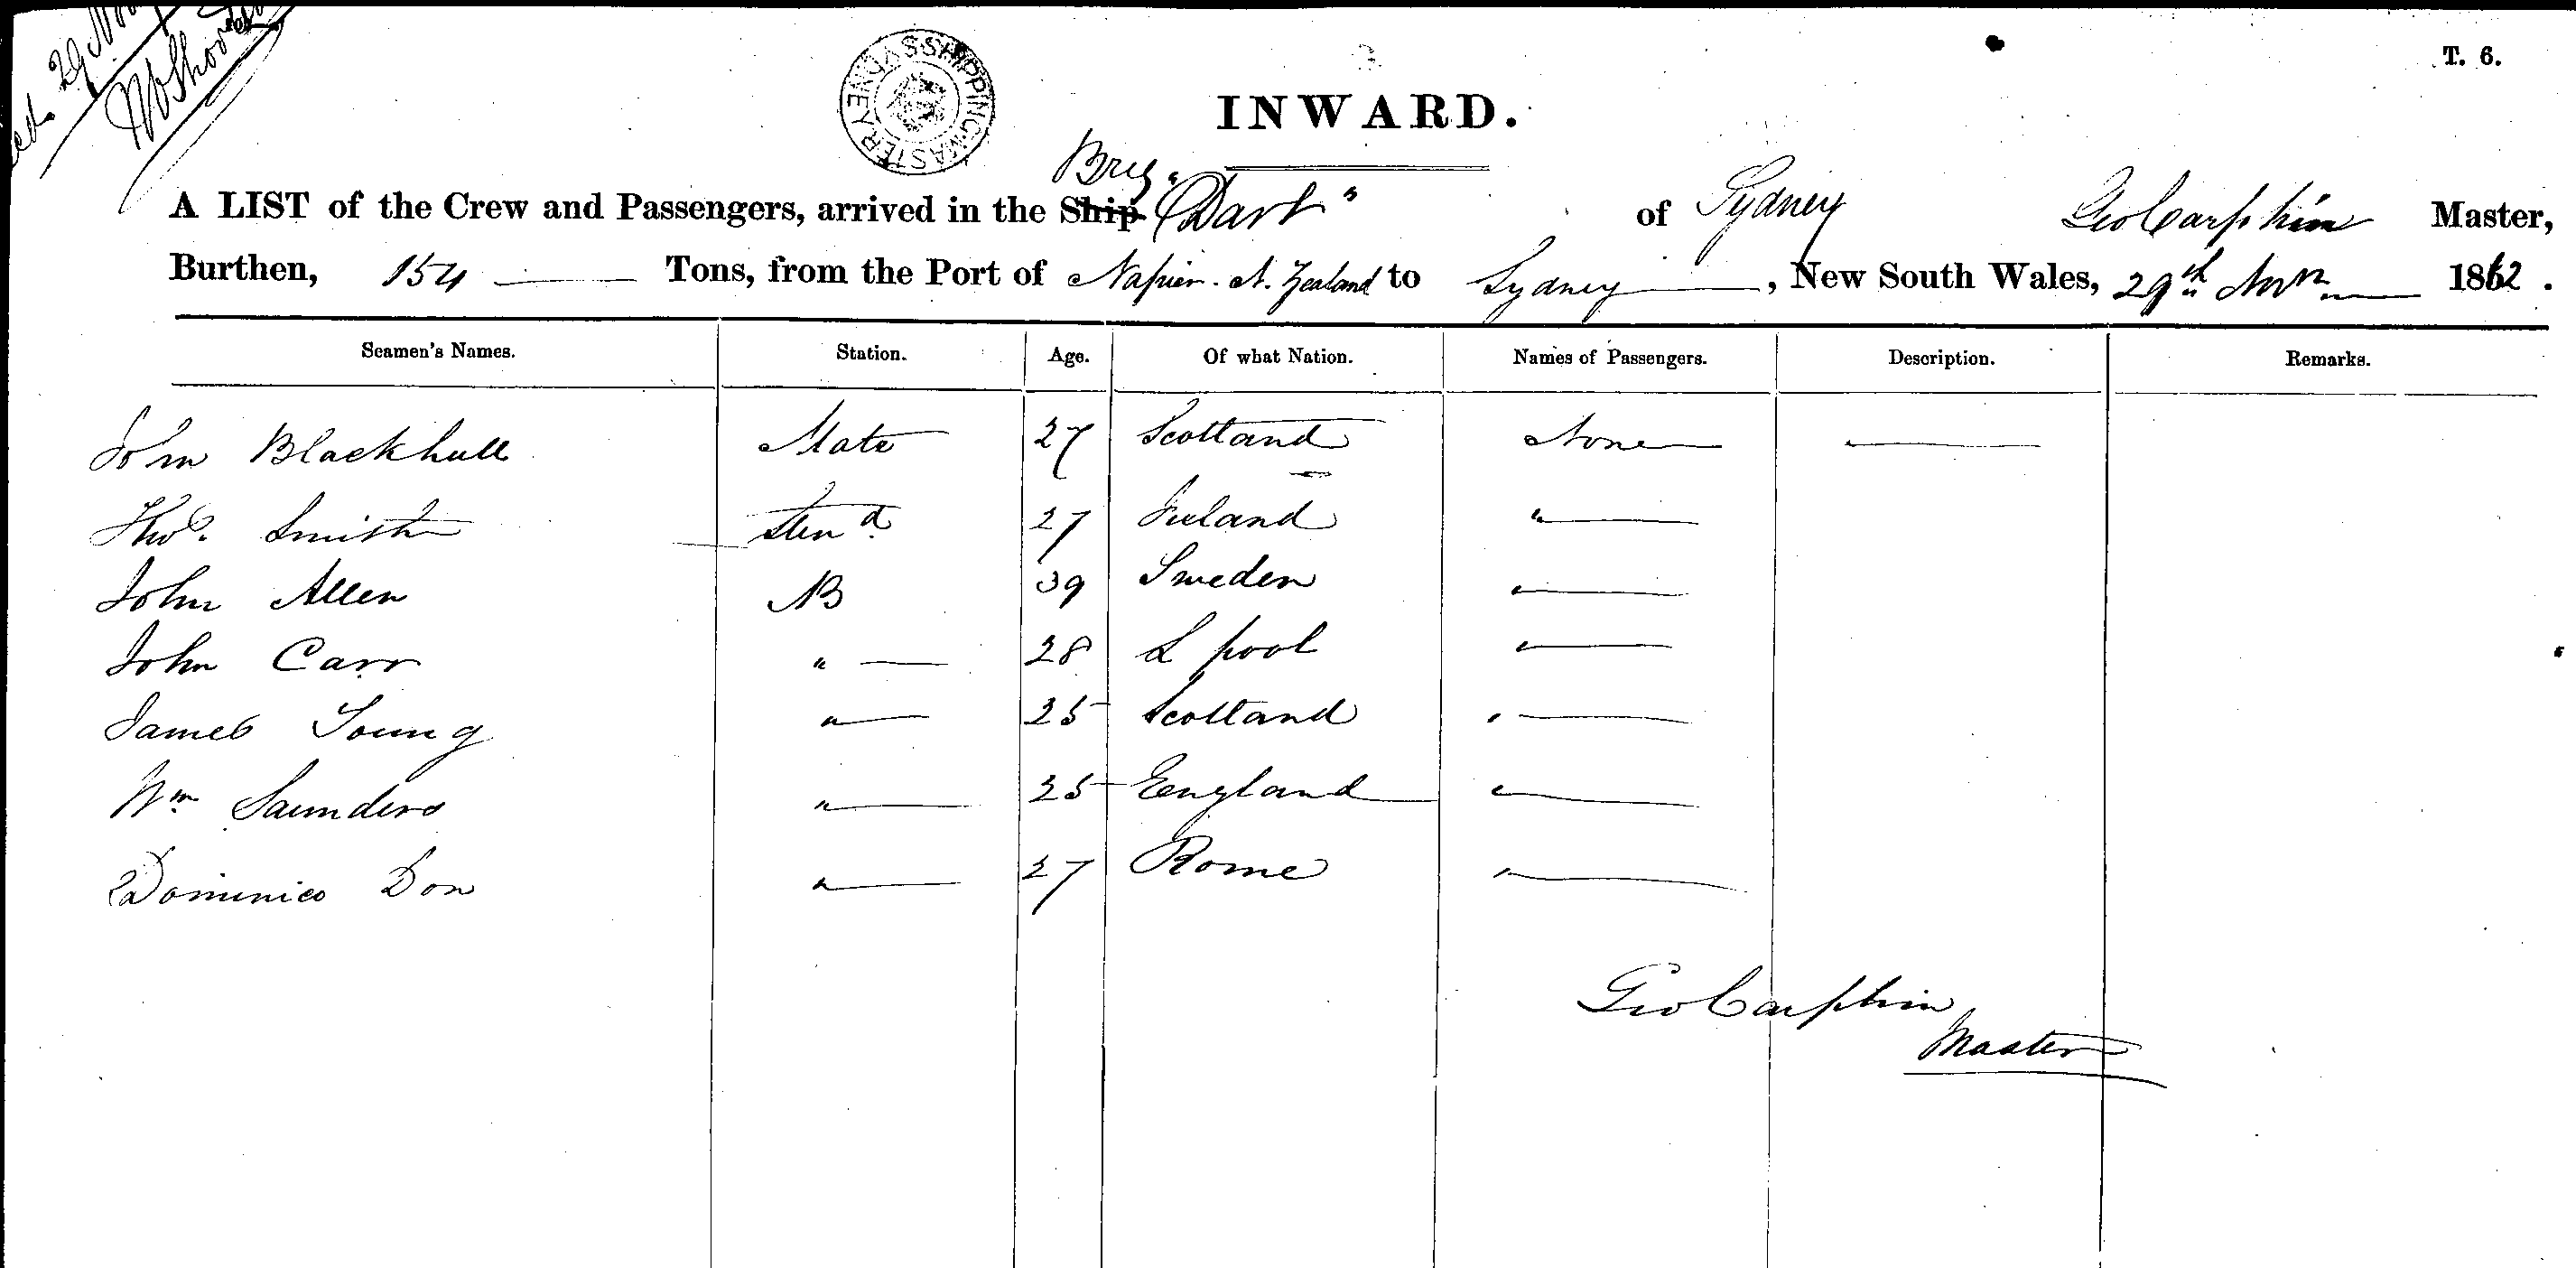 T. 6.
29 Nov
SHIPPING MASTER SYDNEY
INWARD.
Brig
A LIST of the Crew and Passengers, arrived in the Ship "Dart" of Sydney Geo Carphin Master,
Burthen, 154 Tons, from the Port of Napier. N. Zealand to Sydney, New South Wales, 29th Novr 1862.
Seamen's Names. Station. Age. Of what Nation. Names of Passengers. Description. Remarks.
John Blackhall Mate 27 Scotland None
Thos. Smith Stewd 27 Ireland "
John Allen AB 39 Sweden "
John Carr " 28 L pool "
James Young " 25 Scotland "
Wm Saunders " 25 England "
Dominico Don " 27 Rome "
Geo Carphin
Master